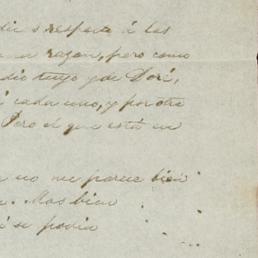 respecto á las
razon, pero como
tuyo y de Doré,
cada uno, y por otro
Pero el que está en
no me parece bien
. Mas bien
si se podia